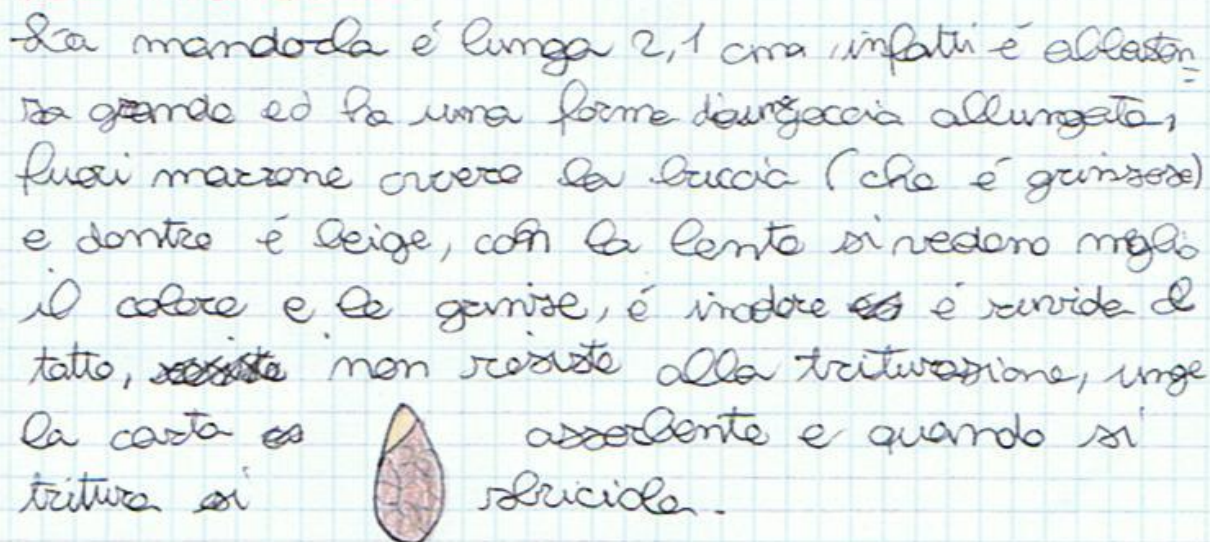 La mandorla é lunga 2,1 cm, infatti é abbastan=
za grande ed ha una forma di una goccia allungata,
fuori marrone ovvero la buccia (che é grinzosa)
e dentro é beige, con la lente si vedono meglio
il colore e le grinze, é inodore é ruvida al
tatto, non resiste alla triturazione, unge
la carta assorbente e quando si
tritura si sbriciola.